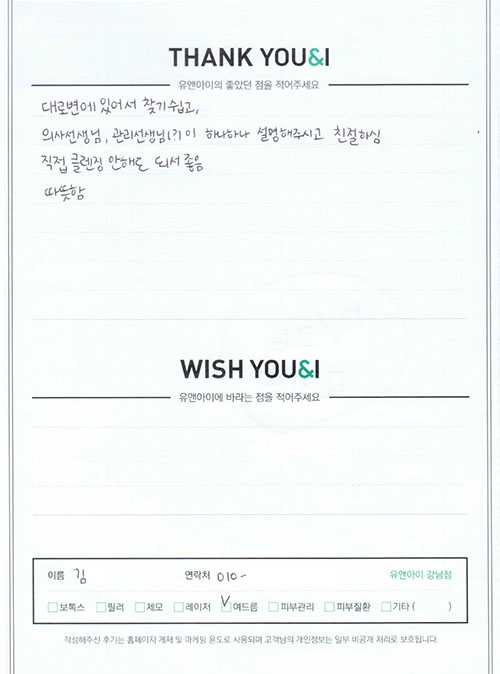 THANK YOU&I
유앤아이의 좋았던 점을 적어주세요
대로변에 있어서 찾기쉽고,
의사선생님, 관리선생님(?)이 하나하나 설명해주시고 친절하심
직접 클렌징 안해도 되서 좋음
따뜻함
WISH YOU&I
유앤아이에 바라는 점을 적어주세요
이름 김 연락처 010- 유앤아이 강남점
보톡스 필러 제모 레이저 V여드름 피부관리 피부질환 기타 ( )
작성해주신 후기는 홈페이지 게재 및 마케팅 용도로 사용되며 고객님의 개인정보는 일부 비공개 처리로 보호됩니다.